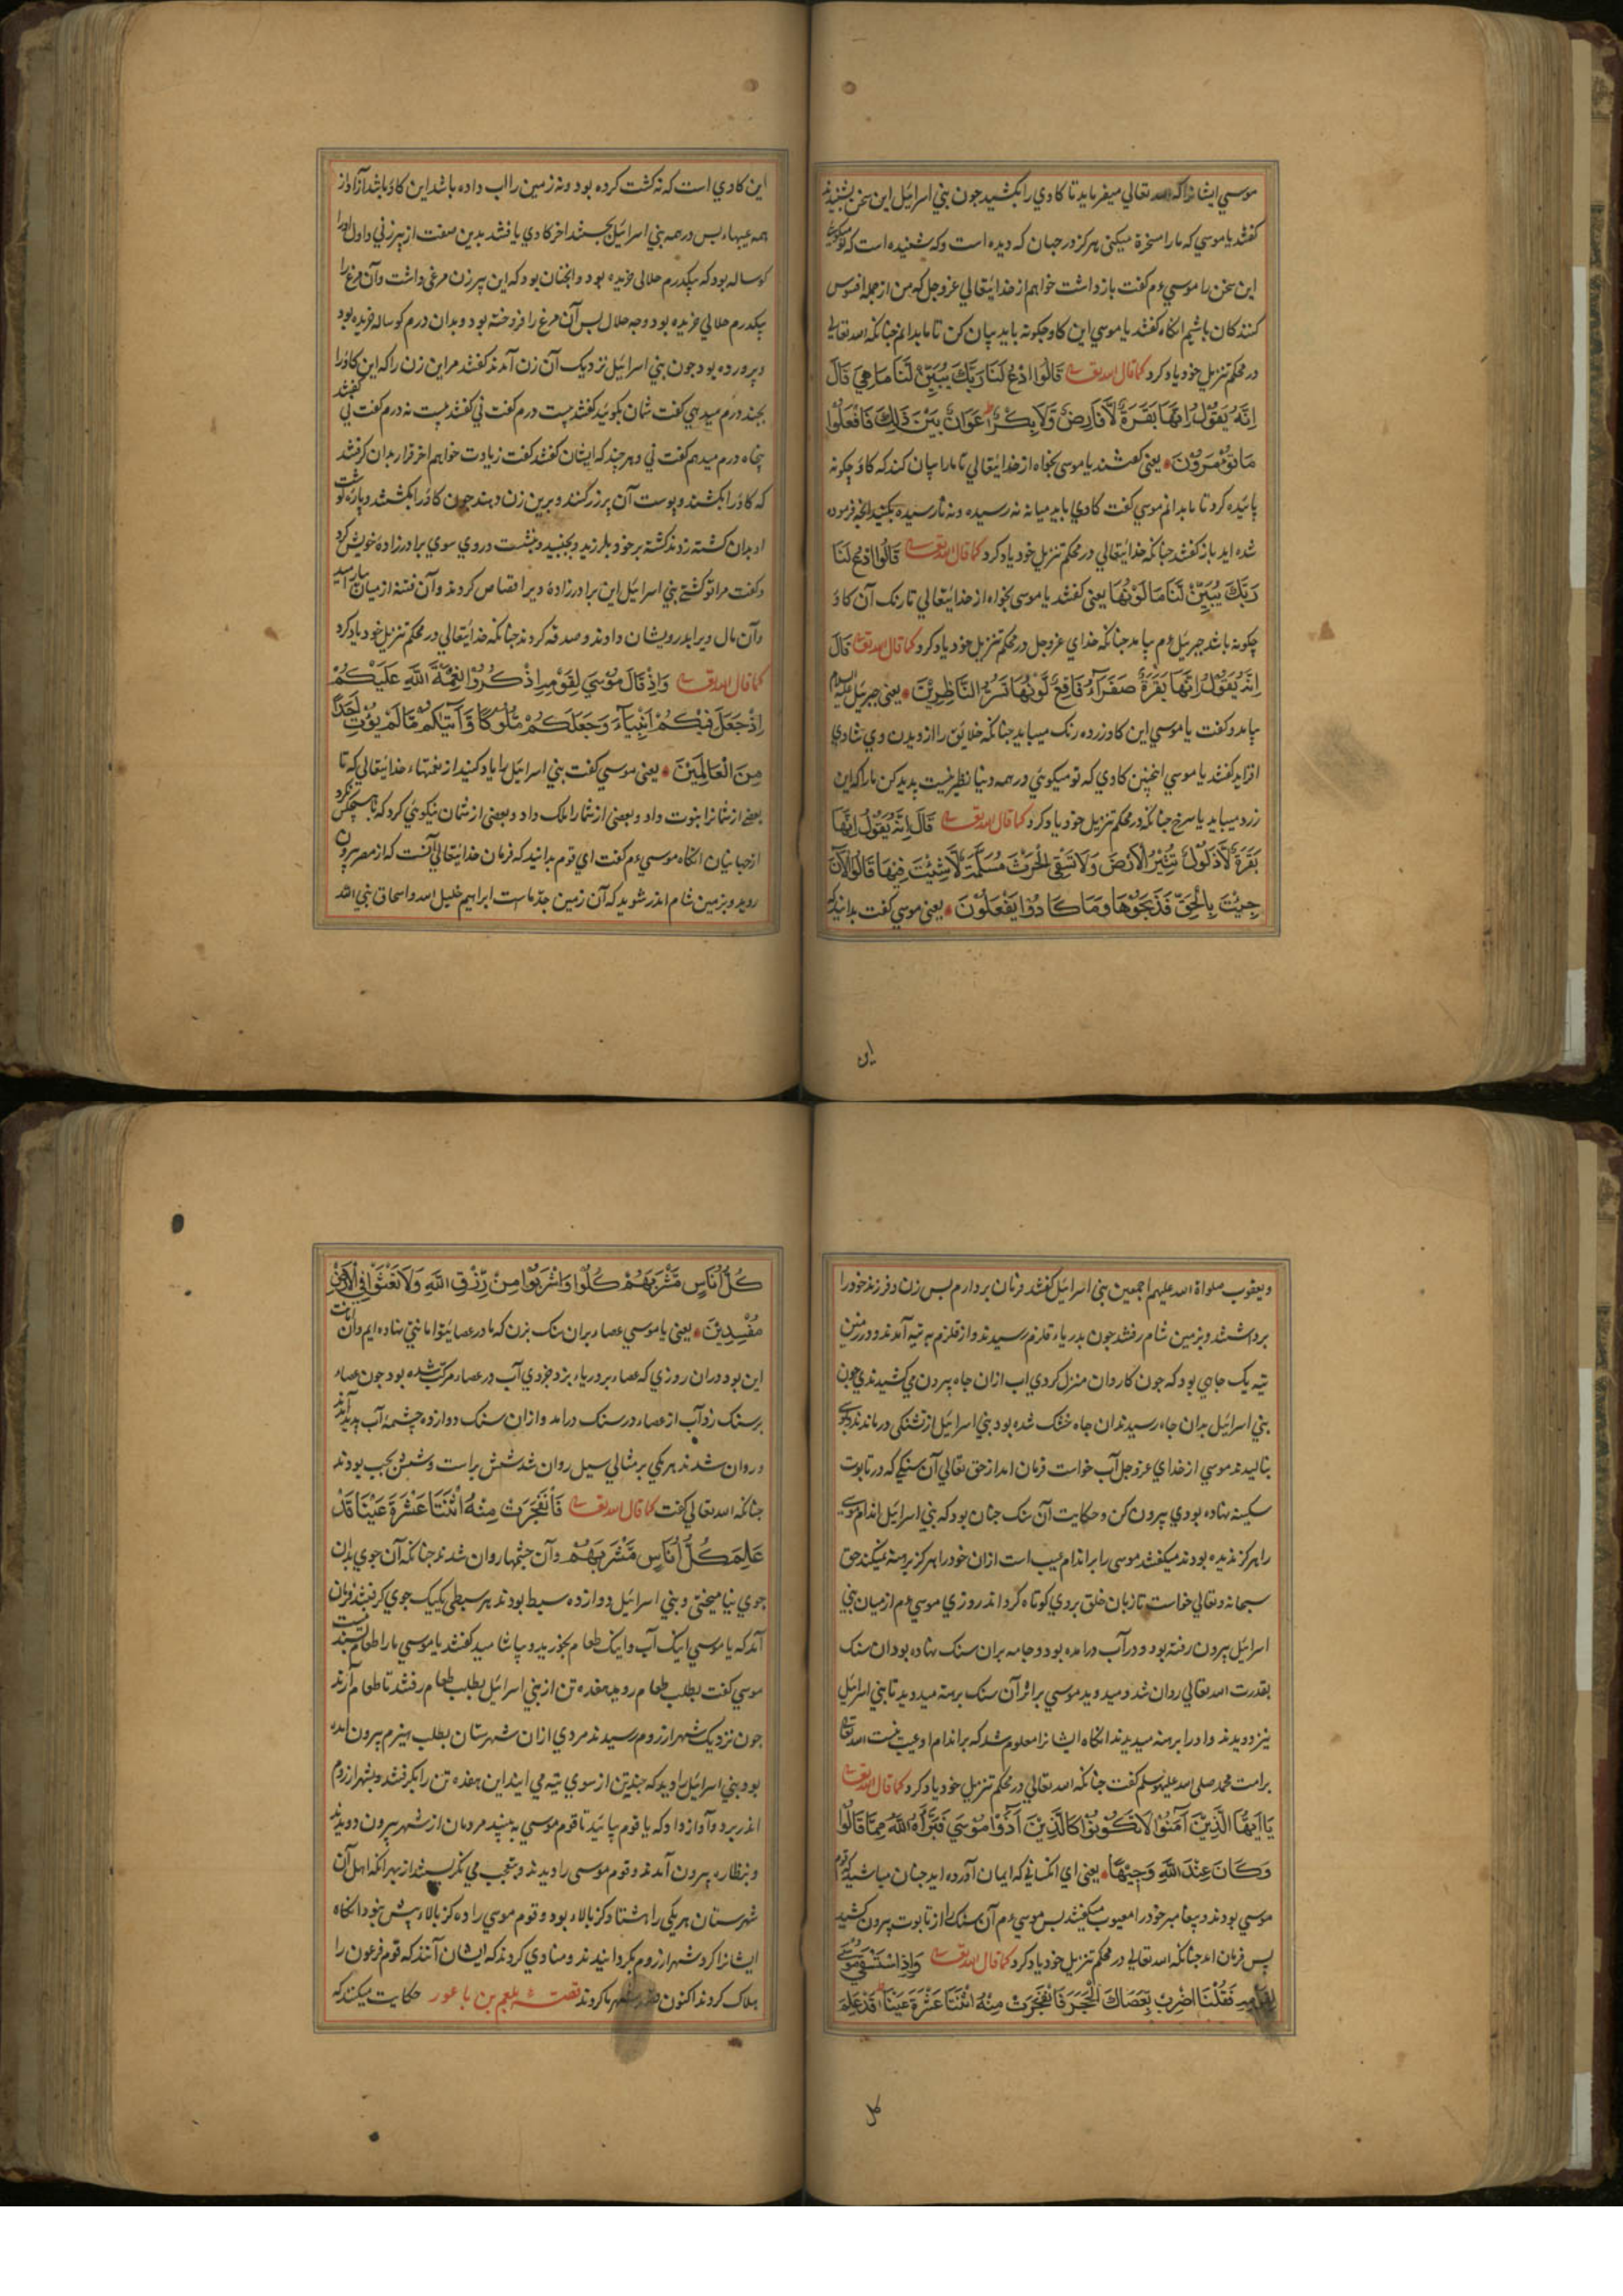 موسي ايشانرا كه الله تعالي ميفرمايد تا كاوي را بكشيد جون بني اسرائيل اين سخن بشنيدند
كفتند ياموسي كه مارا مسخرة ميكني هركز در جهان كه ديده است وكه شنيده است كه تو ميكوئي
اين سخن را موسي ءم كفت بازداشت خواهم از خدايتعالي عزوجل كه من از جمله افسوس
كنندكان باشم انكاه كفتند ياموسي اين كاو جكونه بايد بيان كن تا ما بدانم جنانكه الله تعالي
در محكم تنزيل خود ياد كرد كما قال الله تعالى قَالُوا ادْعُ لَنَا رَبَّكَ يُبَيِّنْ لَنَا مَا هِيَ قَالَ
اِنَّهُ يَقُوْلُ اِنَّهَا بَقَرَةٌ لَّا فَارِضٌ وَّلَا بِكْرٌ عَوَانٌ بَيْنَ ذَالِكَ فَافْعَلُوْا
مَا تُؤْمَرُوْنَ يعني كفتند ياموسي بخواه از خدايتعالي تا مارا بيان كند كه كاو جكونه
بائيده كرد تا ما بدانم موسي كفت كاوي بايد ميانه نه رسيده ونه نارسيده بكنيد انجه فرموده
شده ايد باز كفتند جنانكه خدايتعالي در محكم تنزيل خود ياد كرد كما قال الله تعالى قَالُوا ادْعُ لَنَا
رَبَّكَ يُبَيِّنْ لَّنَا مَا لَوْنُهَا يعني كفتند ياموسي بخواه از خدايتعالي تا رنك آن كاو
جكونه باشد جبرئيل ءم بيامد جنانكه خداي عزوجل در محكم تنزيل خود ياد كرد كما قال الله تعالى قَالَ
اِنَّهُ يَقُوْلُ اِنَّهَا بَقَرَةٌ صَفْرَآءُ فَاقِعٌ لَّوْنُهَا تَسُرُّ النَّاظِرِيْنَ يعني جبرئيل عليه السلام
بيامد وكفت ياموسي اين كاو زرد رنك ميبايد جنانكه خلايق را از ديدن وي شادي
افزايد كفتند ياموسي اينجنين كاوي كه تو ميكوئي در همه دنيا نظير نيست پديد كن مارا كه اين
زرد ميبايد يا سرخ جنانكه در محكم تنزيل خود ياد كرد كما قال الله تعالى قَالَ اِنَّهُ يَقُوْلُ اِنَّهَا
بَقَرَةٌ لَّا ذَلُوْلٌ تُثِيْرُ الْاَرْضَ وَلَا تَسْقِي الْحَرْثَ مُسَلَّمَةٌ لَّا شِيَةَ فِيْهَا قَالُوا الْآنَ
جِئْتَ بِالْحَقِّ فَذَبَحُوْهَا وَمَا كَادُوْا يَفْعَلُوْنَ يعني موسي كفت بدانيد كه
اين
اين كاوي است كه نه كشت كرده بود ونه زمين را اب داده باشد اين كاو باشد آزاد از
همه عيبها، پس در همه بني اسرائيل بجستند اخر كاوي يافتند بدين صفت از پيرزني واول اورا
كوساله بود كه بيكدرم حلالي خريده بود وانجنان بود كه اين پيرزن مرغي داشت وآن مرغ را
بيكدرم حلالي خريده بود وجه حلال پس آن مرغ را فروخته بود وبدان درم كوساله خريده بود
وپرورده بود جون بني اسرائيل نزديك آن زن آمدند كفتند مر اين زن را كه اين كاو را
بجند درم ميدهي كفت شمان بكوئيد كفتند بيست درم كفت ني كفتند بيست نه درم كفت ني كفتند
پنجاه درم ميدهم كفت ني وهر جند كه ايشان كفتند كفت زيادت خواهم اخر قرار بدان كرفتند
كه كاو را بكشند وپوست آن پر زر كنند وبرين زن دهند جون كاو را بكشتند وپاره كوشت
او بدان كشته زدند كشته بر خود بلرزيد وبجنبيد وبنشست وروي سوي برادرزاده خويش كرد
وكفت مرا تو كشتي بني اسرائيل اين برادرزادة ويرا قصاص كردند وآن فتنه از ميان
وآن مال ويرا بدرويشان دادند وصدقه كردند جنانكه خدايتعالي در محكم تنزيل خود ياد كرد
كما قال الله تعالى وَاِذْ قَالَ مُوْسَي لِقَوْمِهِ اذْكُرُوْا نِعْمَةَ اللّٰهِ عَلَيْكُمْ
اِذْ جَعَلَ فِيْكُمْ اَنْبِيَآءَ وَجَعَلَكُمْ مُّلُوْكًا وَّآتَيٰكُمْ مَّا لَمْ يُؤْتِ اَحَدًا
مِنَ الْعَالَمِيْنَ يعني موسي كفت بني اسرائيل را ياد كنيد از نعمتهاء خدايتعالي كه تا
بعضي از شمانرا نبوت داد وبعضي از شمارا ملك داد وبعضي از شمان نيكوئي كرد كه با هيچكس نكرد
از جهانيان انكاه موسي ءم كفت اي قوم بدانيد كه فرمان خدايتعالي آنست كه از مصر بيرون
رويد وبزمين شام اندر شويد كه آن زمين جد ماست ابراهيم خليل الله واسحاق نبي الله
ويعقوب صلواة الله عليهم اجمعين بني اسرائيل كفتند فرمان بردارم پس زن وفرزند خود را
برداشتند وبزمين شام رفتند جون بدرياء قلزم رسيدند واز قلزم به تيه آمدند ودر زمين
تيه يك جاهي بود كه جون كاروان منزل كردي اب ازان جاه بيرون مي كشيدندي جون
بني اسرائيل بدان جاه رسيدند ان جاه خشك شده بود بني اسرائيل از تشنكي درماندند وبموسي
بناليدند موسي از خداي عزوجل آب خواست فرمان امد از حق تعالي آن سنكي كه در تابوت
سكينه نهاده بودي بيرون كن وحكايت آن سنك جنان بود كه بني اسرائيل اندام موسي
را هركز نديده بودند ميكفتند موسي را بر اندام عيب است ازان خود را هركز برهنه نميكند حق
سبحانه وتعالي خواست تا زبان خلق بر وي كوتاه كرداند روزي موسي ءم از ميان بني
اسرائيل بيرون رفته بود ودر آب درامده بود وجامه بران سنك نهاده بود ان سنك
بقدرت الله تعالي روان شد وميدويد موسي بر اثر آن سنك برهنه ميدويد تا بني اسرائيل
نيز دويدند واورا برهنه ميديدند انكاه ايشانرا معلوم شد كه بر اندام او عيب نيست الله تعالى
بر امت محمد صلي الله عليه وسلم كفت جنانكه الله تعالي در محكم تنزيل خود ياد كرد كما قال الله تعالى
يَا اَيُّهَا الَّذِيْنَ آمَنُوْا لَا تَكُوْنُوْا كَالَّذِيْنَ آذَوْا مُوْسَي فَبَرَّاَهُ اللّٰهُ مِمَّا قَالُوْا
وَكَانَ عِنْدَ اللّٰهِ وَجِيْهًا يعني اي انكساني كه ايمان آورده ايد جنان مباشيد كه قوم
موسي بودند وپيغامبر خود را معيوب ميكفتند پس موسي ءم آن سنك را از تابوت بيرون كشيد
پس فرمان امد جنانكه الله تعالي در محكم تنزيل خود ياد كرد كما قال الله تعالى وَاِذِ اسْتَسْقَي مُوْسَي
لِقَوْمِهِ فَقُلْنَا اضْرِبْ بِعَصَاكَ الْحَجَرَ فَانْفَجَرَتْ مِنْهُ اثْنَتَا عَشْرَةَ عَيْنًا قَدْ عَلِمَ
كل
كُلُّ اُنَاسٍ مَّشْرَبَهُمْ كُلُوْا وَاشْرَبُوْا مِنْ رِّزْقِ اللّٰهِ وَلَا تَعْثَوْا فِي الْاَرْضِ
مُفْسِدِيْنَ يعني ياموسي عصاء بران سنك بزن كه ما در عصاء تو امانتي نهاده ايم وآن امانت
اين بود دران روزي كه عصاء بر درياء بزد جزوي آب در عصاء مركب شده بود جون عصاء
بر سنك زد آب از عصاء در سنك درامد وازان سنك دوازده چشمهٔ آب پديد آمد
وروان شدند هر يكي بر مثالي سيل روان شد شش براست وشش بجب بودند
جنانكه الله تعالي كفت كما قال الله تعالى فَانْفَجَرَتْ مِنْهُ اثْنَتَا عَشْرَةَ عَيْنًا قَدْ
عَلِمَ كُلُّ اُنَاسٍ مَّشْرَبَهُمْ وآن جشمها روان شدند جنانكه آن جوي بدان
جوي نياميختي وبني اسرائيل دوازده سبط بودند هر سبطي يكيك جوي كرفتند فرمان
آمد كه ياموسي اينك آب واينك طعام بخوريد وبياشاميد كفتند ياموسي مارا طعام نيست
موسي كفت بطلب طعام رويد هفده تن از بني اسرائيل بطلب طعام رفتند تا طعام آرند
جون نزديك شهر ارزوم رسيدند مردي ازان شهرستان بطلب هيزم بيرون امده
بود بني اسرائيل را ديد كه جندتن از سوي تيه مي ايند اين هفده تن را بكرفت وبشهر ارزوم
اندر برد وآواز داد كه يا قوم بيائيد تا قوم موسي به بينيد مردمان از شهر بيرون دويدند
وبنظاره بيرون آمدند وقوم موسي را ديدند وبتعجب مي نكريستند از بهر انكه اهل آن
شهرستان هر يكي را هشتاد كز بالاء بود وقوم موسي را ده كز بالاء بيش نبود انكاه
ايشانرا كرد شهر ارزوم بكردانيدند ومنادي كردند كه ايشان آنند كه قوم فرعون را
هلاك كردند اكنون شهر ما كردند قصه بلعم بن باعور حكايت ميكنند كه